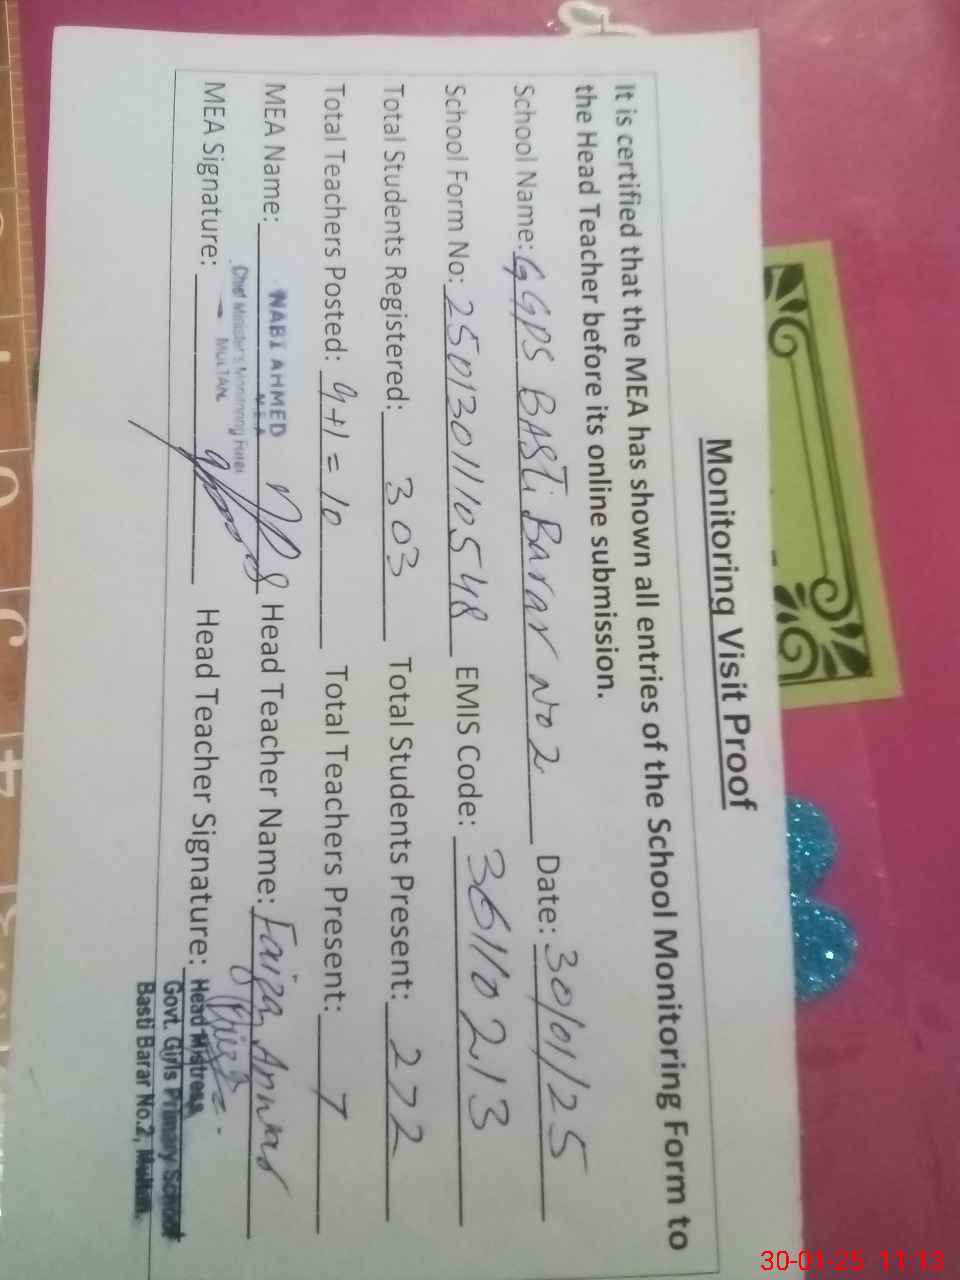 Monitoring Visit Proof
It is certified that the MEA has shown all entries of the School Monitoring Form to
the Head Teacher before its online submission.
School Name: GGPS BASTi Barar No 2 Date: 30/01/25
School Form No: 2501301110548 EMIS Code: 36110213
Total Students Registered: 303 Total Students Present: 272
Total Teachers Posted: 9+1 = 10 Total Teachers Present: 7
MEA Name: NABI AHMED Head Teacher Name: Faiza Anwar
M E A
Chief Minister's Monitoring Force
MULTAN
MEA Signature: Head Teacher Signature:
Head Mistress
Govt. Girls Primary School
Basti Barar No.2, Multan.
30-01-25 11:13